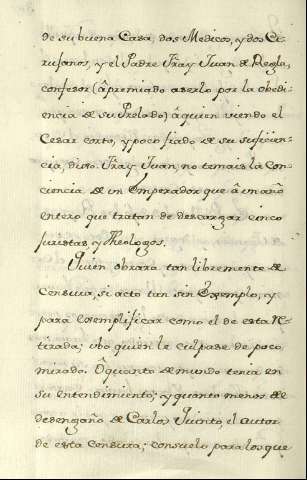 de su buena Casa, dos Medicos, y dos Ci-
rujanos, y el Padre Fray Juan de Regla,
confesor (âpremiado aserlo por la obedi-
encia de su Prelado) âquien viendo el
Cesar corto, y poco fiado de su suficien-
cia, dixo. Fray Juan, no temais la Con-
ciencia de un Emperador que â un año
entero que tratan de descargar cinco
Juristas y Theologos.
Quien obrará tan libremente de
Censura, si acto tan sin Exemplo, y
para exemplificar como el de esta Re-
tirada; ubo quien le culpase de poco
mirado. Ô quanto de mundo tenia en
su entendimiento; y quanto menos de
desengaño de Carlos Quinto el autor
de esta censura; consuelo para los que